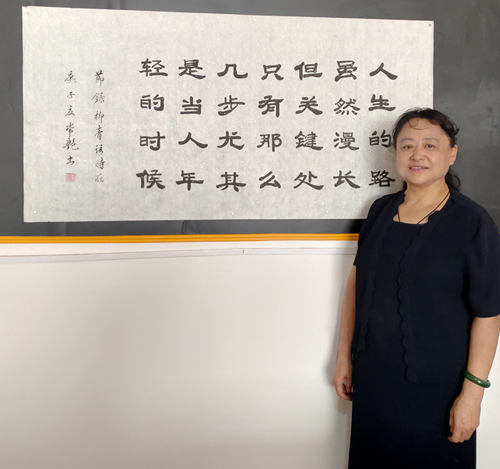 人生的路
虽然漫长
但关键处
只有那么
几步尤其
是当人年
轻的时候
節録柳青语時在
庚子夏常艳书